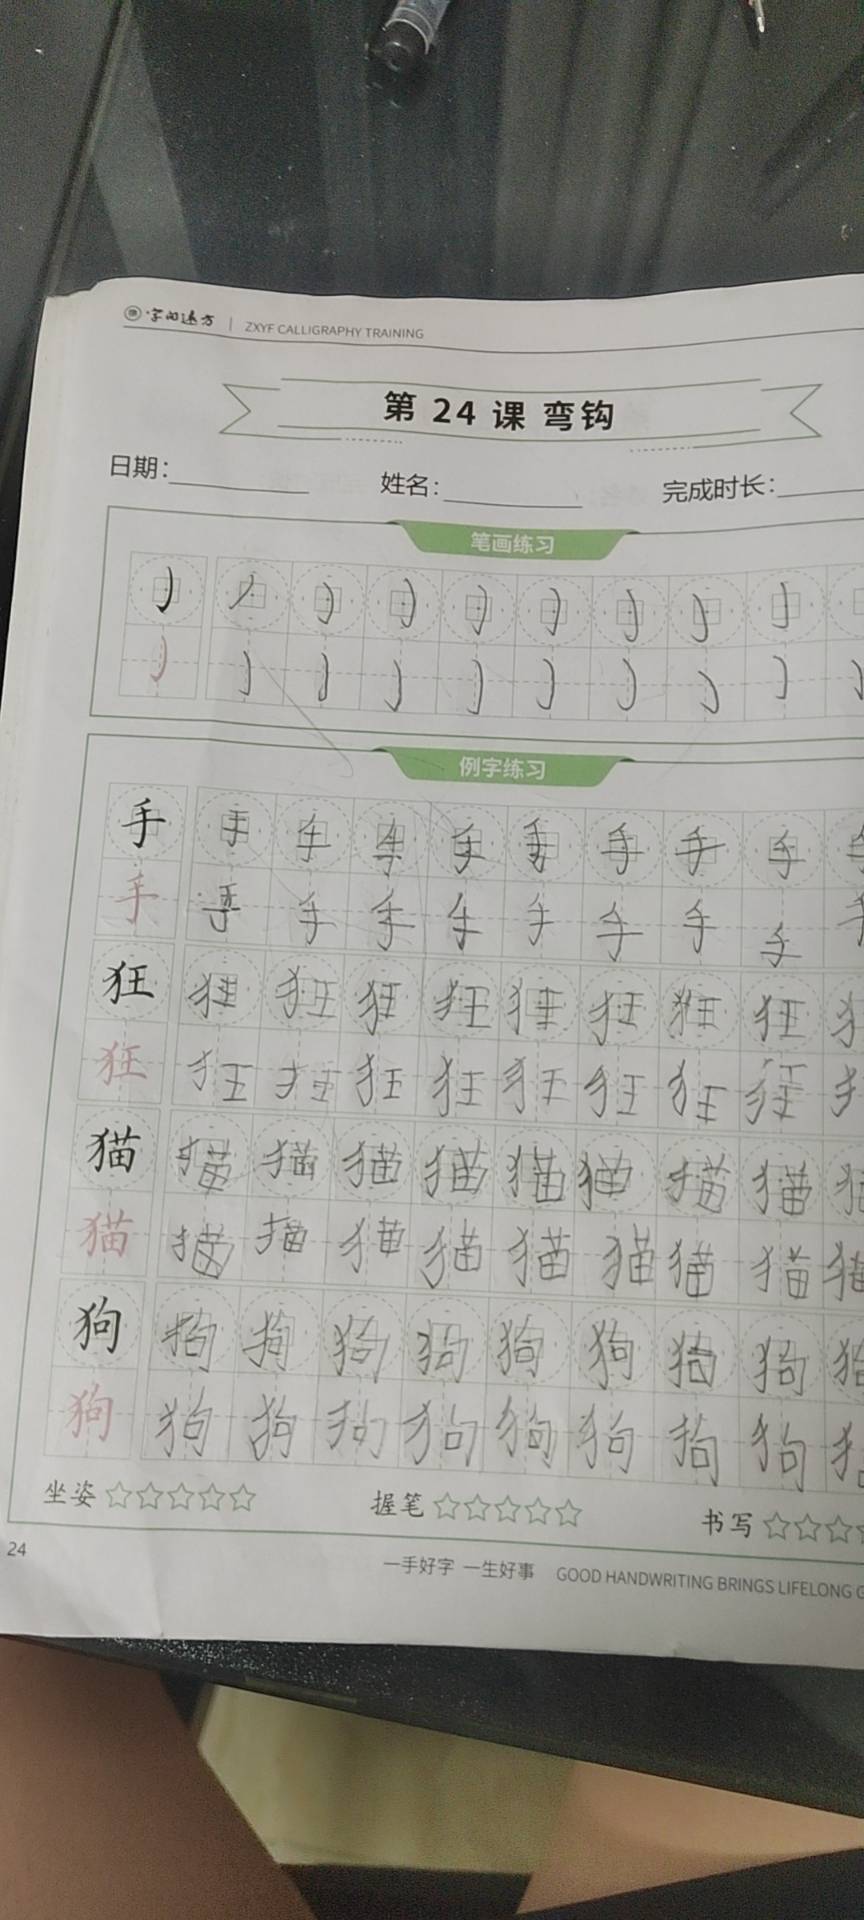 字向远方 | ZXYF CALLIGRAPHY TRAINING
第 24 课 弯钩
日期： 姓名： 完成时长：
笔画练习
例字练习
手 手 手 手 手 手 手 手 手
手 手 手 手 手 手 手 手 手 手
狂 狂 狂 狂 狂 狂 狂 狂 狂
狂 狂 狂 狂 狂 狂 狂 狂 狂
猫 猫 猫 猫 猫 猫 猫 猫 猫
猫 猫 猫 猫 猫 猫 猫 猫 猫
狗 狗 狗 狗 狗 狗 狗 狗 狗
狗 狗 狗 狗 狗 狗 狗 狗 狗
坐姿 握笔 书写
24
一手好字 一生好事 GOOD HANDWRITING BRINGS LIFELONG